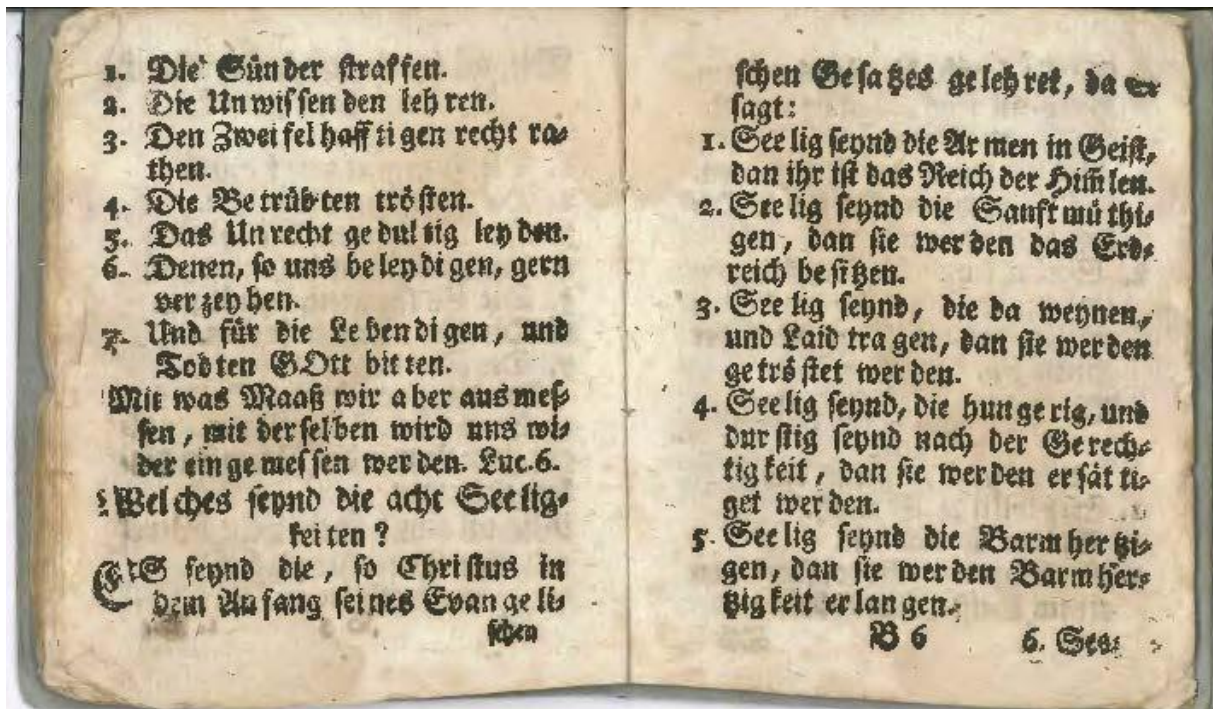 1. Die Sün der straf fen.
2. Die Un wis sen den leh ren.
3. Den Zwei fel haff ti gen recht ra-
then.
4. Die Be trüb ten trö sten.
5. Das Un recht ge dul tig ley den.
6. Denen, so uns be ley di gen, gern
ver zey hen.
7. Und für die Le ben di gen, und
Tod ten GOtt bit ten.
Mit was Maaß wir a ber aus mes-
sen, mit der sel ben wird uns wi-
der ein ge mes sen wer den. Luc. 6.
Wel ches seynd die acht See lig-
kei ten?
ES seynd die, so Chri stus in
dem An fang sei nes Evan ge li-
schen
schen Ge sa tzes ge leh ret, da er
sagt:
1. See lig seynd die Ar men in Geist,
dan ihr ist das Reich der Him̃ len.
2. See lig seynd die Sanft mü thi-
gen, dan sie wer den das Erd-
reich be si tzen.
3. See lig seynd, die da weynen,
und Laid tra gen, dan sie wer den
ge trö stet wer den.
4. See lig seynd, die hun ge rig, und
dur stig seynd nach der Ge rech-
tig keit, dan sie wer den er sät ti-
get wer den.
5. See lig seynd die Barm her tzi-
gen, dan sie wer den Barm her-
tzig keit er lan gen.
B 6 6. See-